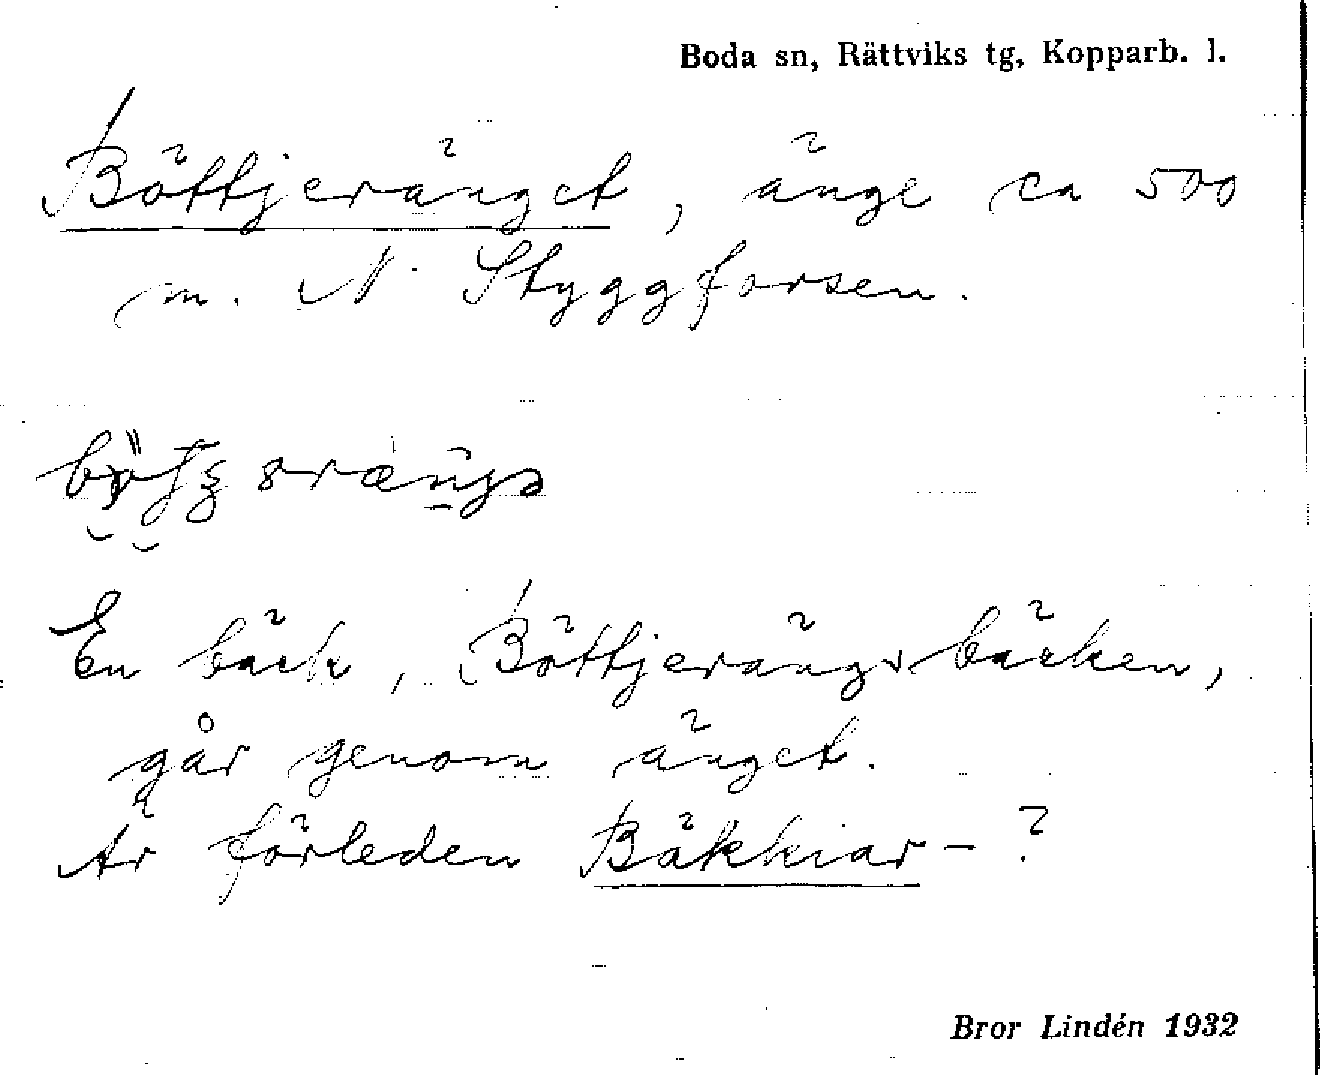 Boda sn, Rättviks tg, Kopparb. l.
Böttjeränget, änge ca 500
m. N. Styggforsen.
En bäck, Böttjerängsbäcken,
går genom änget.
Är förleden Bäkkiar- ?
Bror Lindén 1932